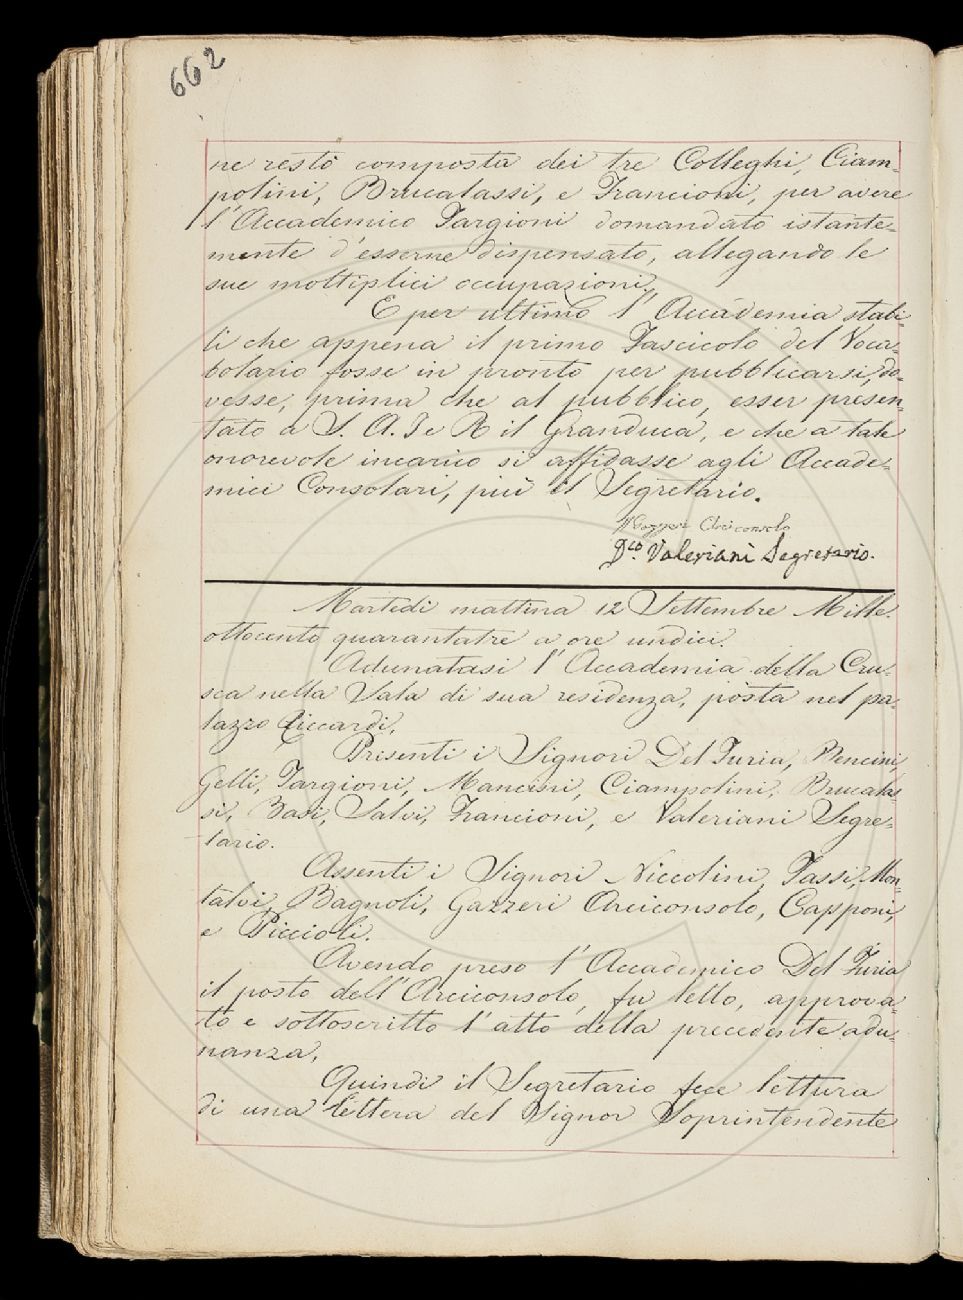 662
ne restò composta dei tre Colleghi, Ciam-
polini, Brucalassi, e Francioni, per avere
l'Accademico Targioni domandato istante-
mente d'esserne dispensato, allegando le
sue moltiplici occupazioni.
E per ultimo l'Accademia stabi-
lì che appena il primo Fascicolo del Voca-
bolario fosse in pronto per pubblicarsi, do-
vesse, prima che al pubblico, esser presen-
tato a S. A. I e R il Granduca, e che a tale
onorevole incarico si affidasse agli Accade-
mici Consolari, più il Segretario.
Gazzeri Arciconsolo
Dco. Valeriani Segretario.
Martedì mattina 12 Settembre Mille.
ottocento quarantatre a ore undici.
Adunatasi l'Accademia della Cru-
sca nella Sala di sua residenza, posta nel pa-
lazzo Riccardi,
Presenti i Signori Del Furia, Bencini,
Gelli, Targioni, Mancini, Ciampolini, Brucalas-
si, Basi, Salvi, Francioni, e Valeriani Segre-
tario.
Assenti i Signori Niccolini, Tassi, Mon-
talvi, Bagnoli, Gazzeri Arciconsolo, Capponi,
e Piccioli.
Avendo preso l'Accademico Del Furia
il posto dell'Arciconsolo, fu letto, approva-
to e sottoscritto l'atto della precedente adu-
nanza.
Quindi il Segretario fece lettura
di una lettera del Signor Soprintendente